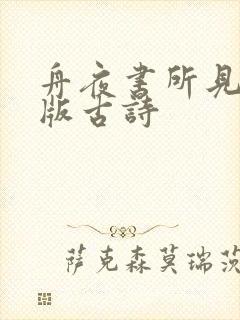 舟夜書所見
版古詩
萨克森莫瑞茨